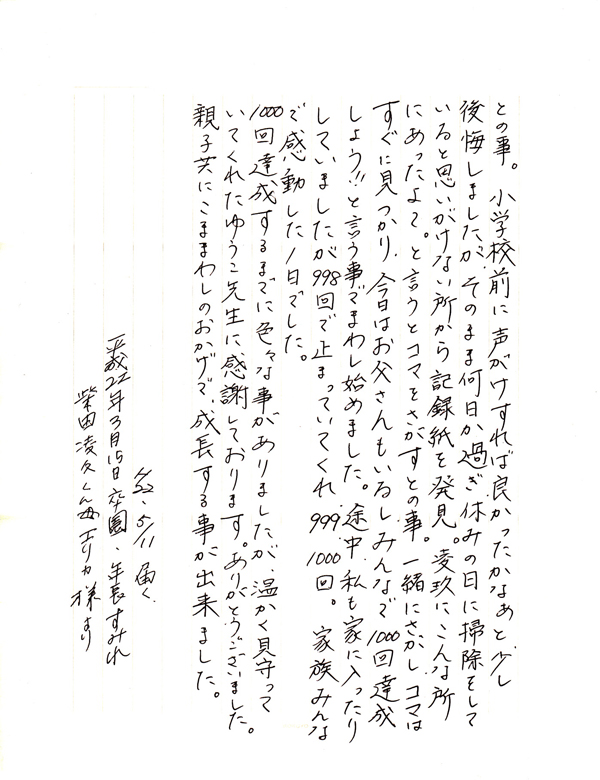 との事。小学校前に声がけすれば良かったかなぁと少し
後悔しましたが、そのまま何日か過ぎ休みの日に掃除をして
いると思いがけない所から記録紙を発見。凌玖にこんな所
にあったよて。と言うとコマをさがすとの事。一緒にさがしコマは
すぐに見つかり、今日はお父さんもいるしみんなで1000回達成
しよう!!と言う事でまわし始めました。途中私も家に入ったり
していましたが998回で止まっていてくれ 999 1000回。家族みんな
で感動した1日でした。
1000回達成するまでに色々な事がありましたが、温かく見守って
いてくれたゆうこ先生に感謝しております。ありがとうございました。
親子共にこままわしのおかげで、成長する事が出来ました。
H22.5/11 届く
平成22年3月15日卒園、年長すみれ
柴田凌久くん母エリカ様より